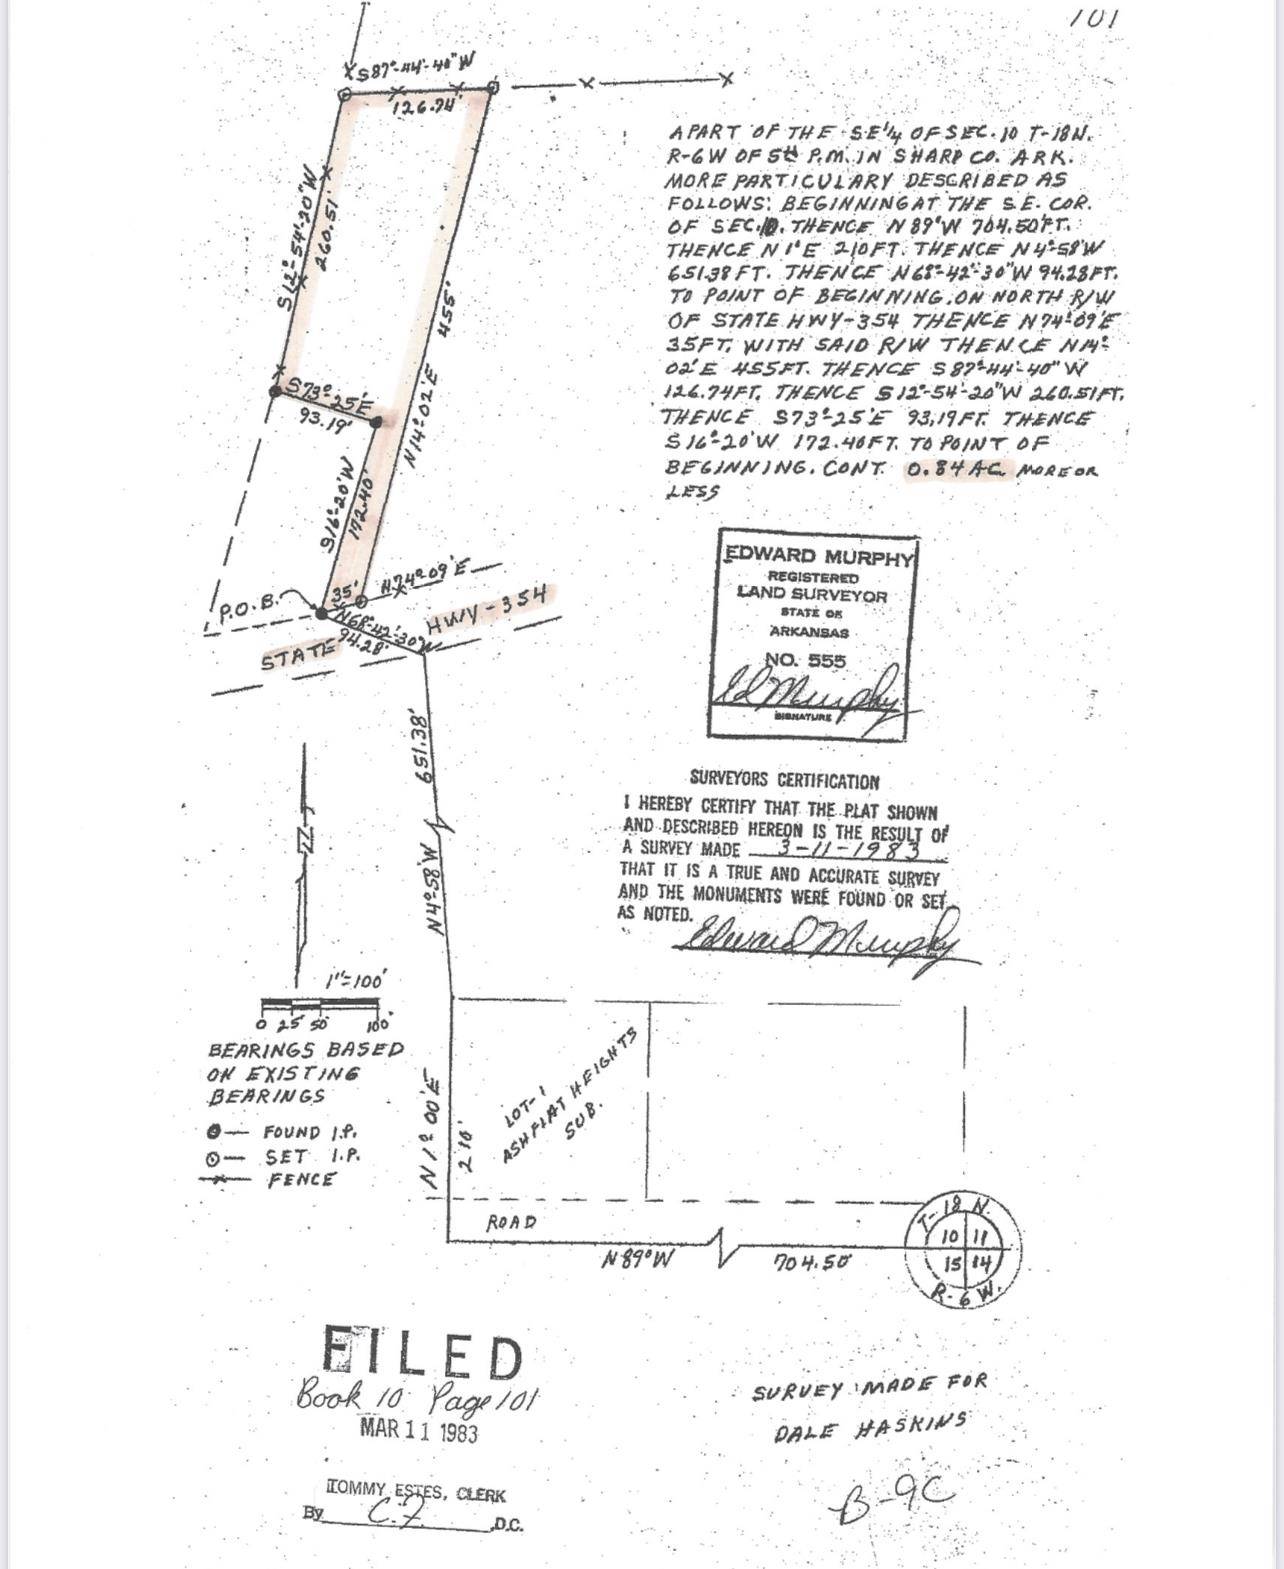 101
S87°-44'-40"W
126.74'
S12°-54'-20"W
260.51'
N14°-02'E 455'
S73°-25'E
93.19'
S16°-20'W
172.40'
P.O.B.
35'
N74°-09'E
N68°-42'-30"W
94.28'
STATE HWY-354
A PART OF THE S.E¼ OF SEC.10 T-18N.
R-6W OF 5th P.M. IN SHARP CO. ARK.
MORE PARTICULARY DESCRIBED AS
FOLLOWS: BEGINNING AT THE S.E. COR.
OF SEC.10. THENCE N 89°W 704.50FT.
THENCE N 1°E 210FT. THENCE N4°-58'W
651.38 FT. THENCE N68°-42'-30"W 94.28FT.
TO POINT OF BEGINNING. ON NORTH R/W
OF STATE HWY-354 THENCE N74°-09'E
35FT. WITH SAID R/W THENCE N14°-
02'E 455FT. THENCE S87°-44'-40"W
126.74FT. THENCE S12°-54'-20"W 260.51FT.
THENCE S73°-25'E 93.19FT. THENCE
S16°-20'W 172.40FT. TO POINT OF
BEGINNING. CONT. 0.84 AC. MORE OR
LESS
EDWARD MURPHY
REGISTERED
LAND SURVEYOR
STATE OF
ARKANSAS
NO. 555
Ed Murphy
SIGNATURE
SURVEYORS CERTIFICATION
I HEREBY CERTIFY THAT THE PLAT SHOWN
AND DESCRIBED HEREON IS THE RESULT OF
A SURVEY MADE 3-11-1983
THAT IT IS A TRUE AND ACCURATE SURVEY
AND THE MONUMENTS WERE FOUND OR SET
AS NOTED.
Edward Murphy
651.38'
N4°-58'W
N
1"=100'
0 25' 50' 100'
BEARINGS BASED
ON EXISTING
BEARINGS
FOUND I.P.
SET I.P.
FENCE
N 1° 00'E
210'
LOT-1
ASH FLAT HEIGHTS
SUB.
ROAD
N 89°W 704.50'
T-18 N.
10 11
15 14
R-6 W.
FILED
Book 10 Page 101
MAR 11 1983
TOMMY ESTES, CLERK
By C.F. D.C.
SURVEY MADE FOR
DALE HASKINS
B-9C